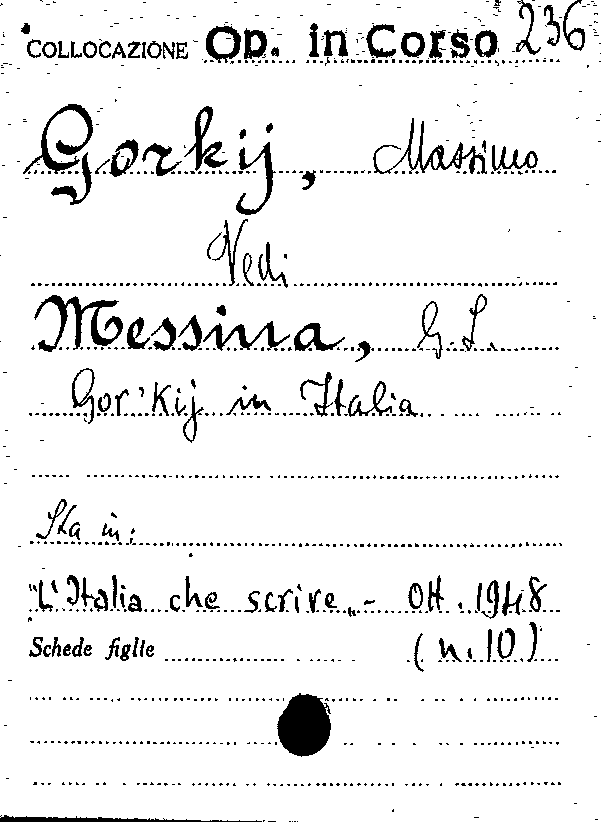 COLLOCAZIONE Op. in Corso 236
Gorkij, Massimo
Vedi
Messina, G. L.
Gor'Kij in Italia
Sta in:
"L'Italia che scrive„ - Ott. 1948
Schede figlie (n. 10)